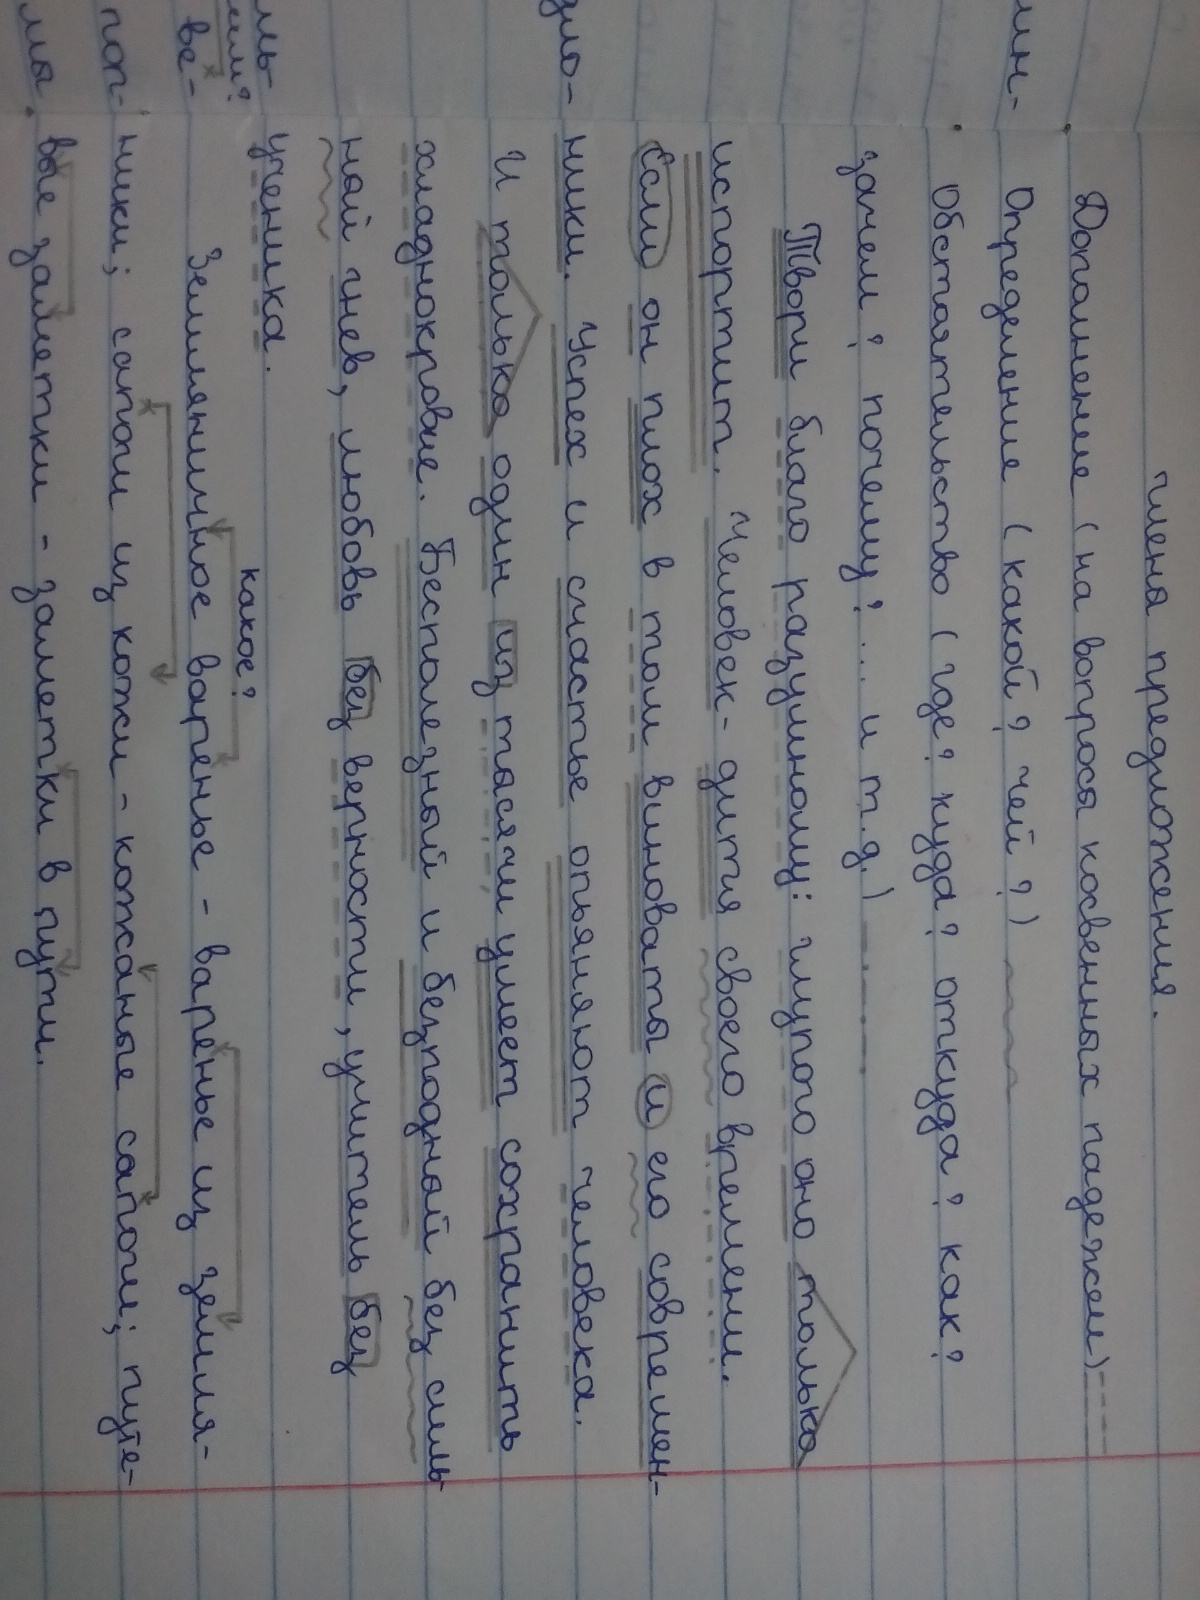 члена предложения.
Дополнение (на вопросы косвенных падежей)
Определение (какой? чей?)
Обстоятельство (где? куда? откуда? как?
зачем? почему?... и т.д.)
Твори благо разумному: глупого оно только
испортит. Человек - дитя своего времени.
Если он плох в том виноваты и его современ-
ники. Успех и счастье опьяняют человека.
И только один из тысячи умеет сохранить
хладнокровие. Бесполезный и безплодный без силь
ной гнев, любовь без верности, учитель без
ученика.
какое?
Земляничное варенье - варенье из земля-
ники; сапоги из кожи - кожаные сапоги; путе-
вые заметки - заметки в пути.